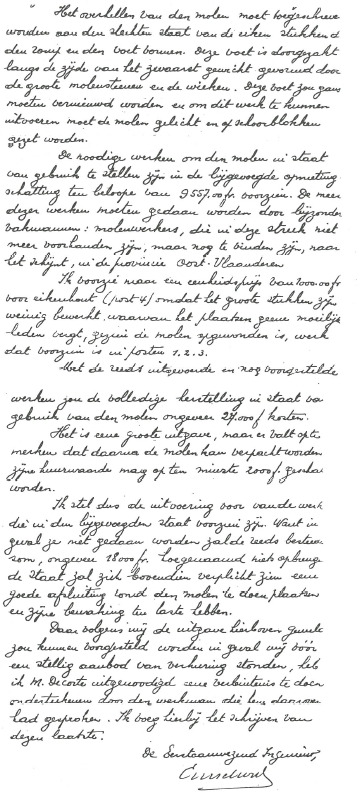 Het overhellen van den molen moet toegeschreven
worden aan den slechten staat van de eiken stukken
den romp en den voet vormen. Deze voet is doorgezakt
langs de zijde van het zwaarst gewicht gevormd door
de groote molensteenen en de wieken. Deze voet zou gans
moeten vernieuwd worden en om dit werk te kunnen
uitvoeren moet de molen gelicht en op schoorblokken
gezet worden.
De noodige werken om den molen in staat
van gebruik te stellen zijn in de bijgevoegde opmeting
schatting ten beloope van 9557.00 fr. voorzien. De meer
dezer werken moeten gedaan worden door bijzonder
vakmannen: molenwerkers, die in deze streek niet
meer voorhanden zijn, maar nog te vinden zijn, naar
het schijnt, in de provincie Oost-Vlaanderen.
Ik voorzie maar een eenheidsprijs van 1000.00 fr
voor eikenhout (post 4) omdat het groote stukken zijn
weinig bewerkt, waarvan het plaatsen geene moeilijk
heden vergt, gezien de molen opgewonden is, werk
dat voorzien is in posten 1.2.3.
Met de reeds uitgevoerde en nog voorgestelde
werken zou de volledige herstelling in staat van
gebruik van den molen ongeveer 27.000 f kosten.
Het is eene groote uitgave, maar er valt op te
merken dat daarna de molen kan verpacht worden
zijne huurwaarde mag op ten minste 2000 f. geschat
worden.
Ik stel dus de uitvoering voor van de werk
die in den bijgevoegden staat voorzien zijn. Want in
geval ze niet gedaan worden zal de reeds besteede
som, ongeveer 18000 fr. hoegenaamd niets opbrengen
de Staat zal zich bovendien verplicht zien eene
goede afsluiting rond den molen te doen plaatsen
en zijne bewaking ten laste hebben.
Daar volgens mij de uitgave hierboven
zou kunnen voorgesteld worden in geval wij vóór
een stellig aanbod van verhuring stonden, heb
ik M. Decorte uitgenoodigd eene verbintenis te doen
onderteekenen door den werkman die hem daarover
had gesproken. Ik voeg hierbij het schrijven van
dezen laatste.
De Eerstaanwezend Ingenieur,